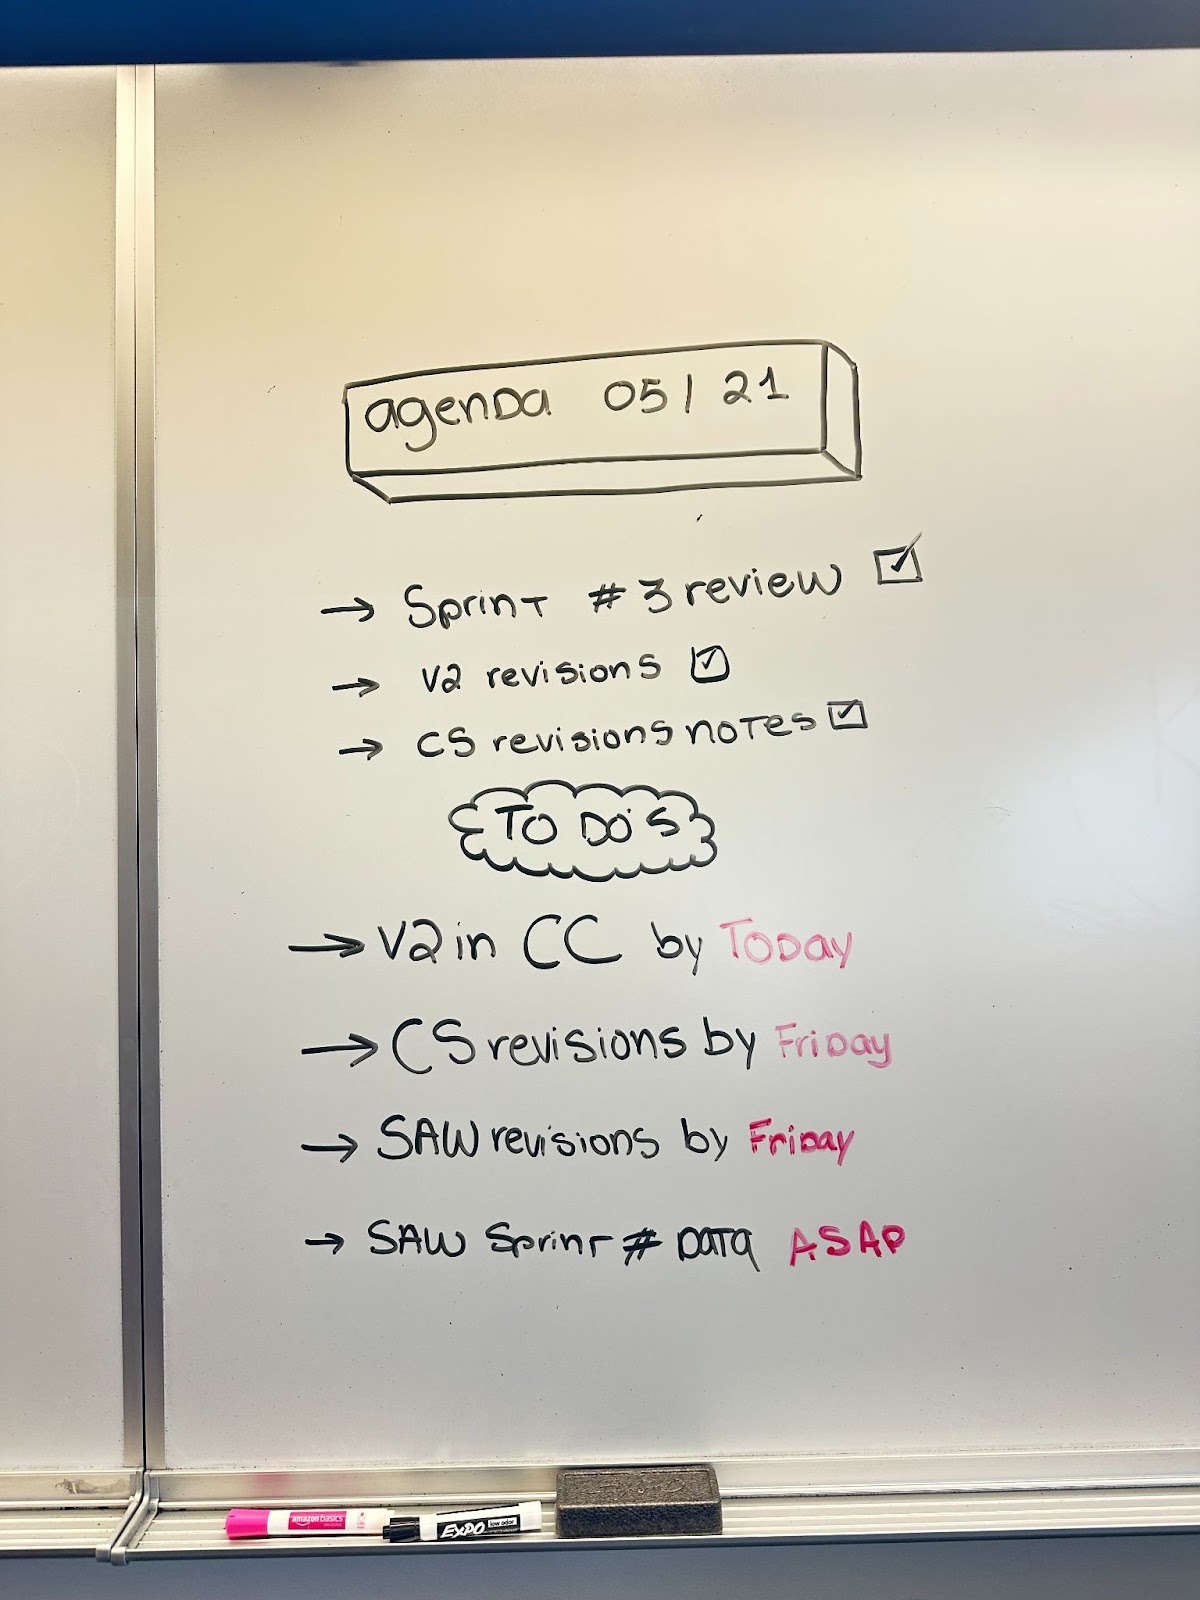 agenda 05/21
→ Sprint #3 review ☑
→ V2 revisions ☑
→ CS revisions notes ☑
TO DO'S
→ V2 in CC by Today
→ CS revisions by Friday
→ SAW revisions by Friday
→ SAW Sprint # DATA ASAP
amazon basics
EXPO low odor